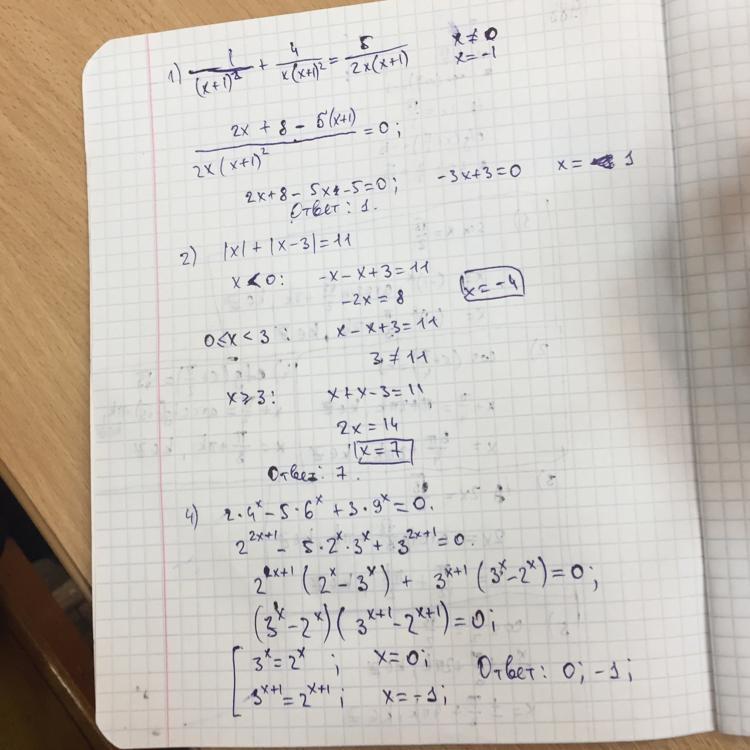 1) 1/(x+1)² + 4/x(x+1)² = 5/2x(x+1) x ≠ 0
x = -1
2x + 8 - 5(x+1)/2x(x+1)² = 0;
2x+8 - 5x - 5 = 0; -3x+3=0 x = 1
Ответ: 1.
2) |x| + |x-3| = 11
x < 0: -x - x + 3 = 11
-2x = 8 x = -4
0 ≤ x < 3: x - x + 3 = 11
3 ≠ 11
x ⩾ 3: x + x - 3 = 11
2x = 14
x = 7
Ответ: 7.
4) 2·4ˣ - 5·6ˣ + 3·9ˣ = 0.
2²ˣ⁺¹ - 5·2ˣ·3ˣ + 3²ˣ⁺¹ = 0.
2²ˣ⁺¹ (2ˣ - 3ˣ) + 3ˣ⁺¹ (3ˣ - 2ˣ) = 0;
(3ˣ - 2ˣ)(3ˣ⁺¹ - 2ˣ⁺¹) = 0;
3ˣ = 2ˣ; x = 0; Ответ: 0; -1;
3ˣ⁺¹ = 2ˣ⁺¹; x = -1;